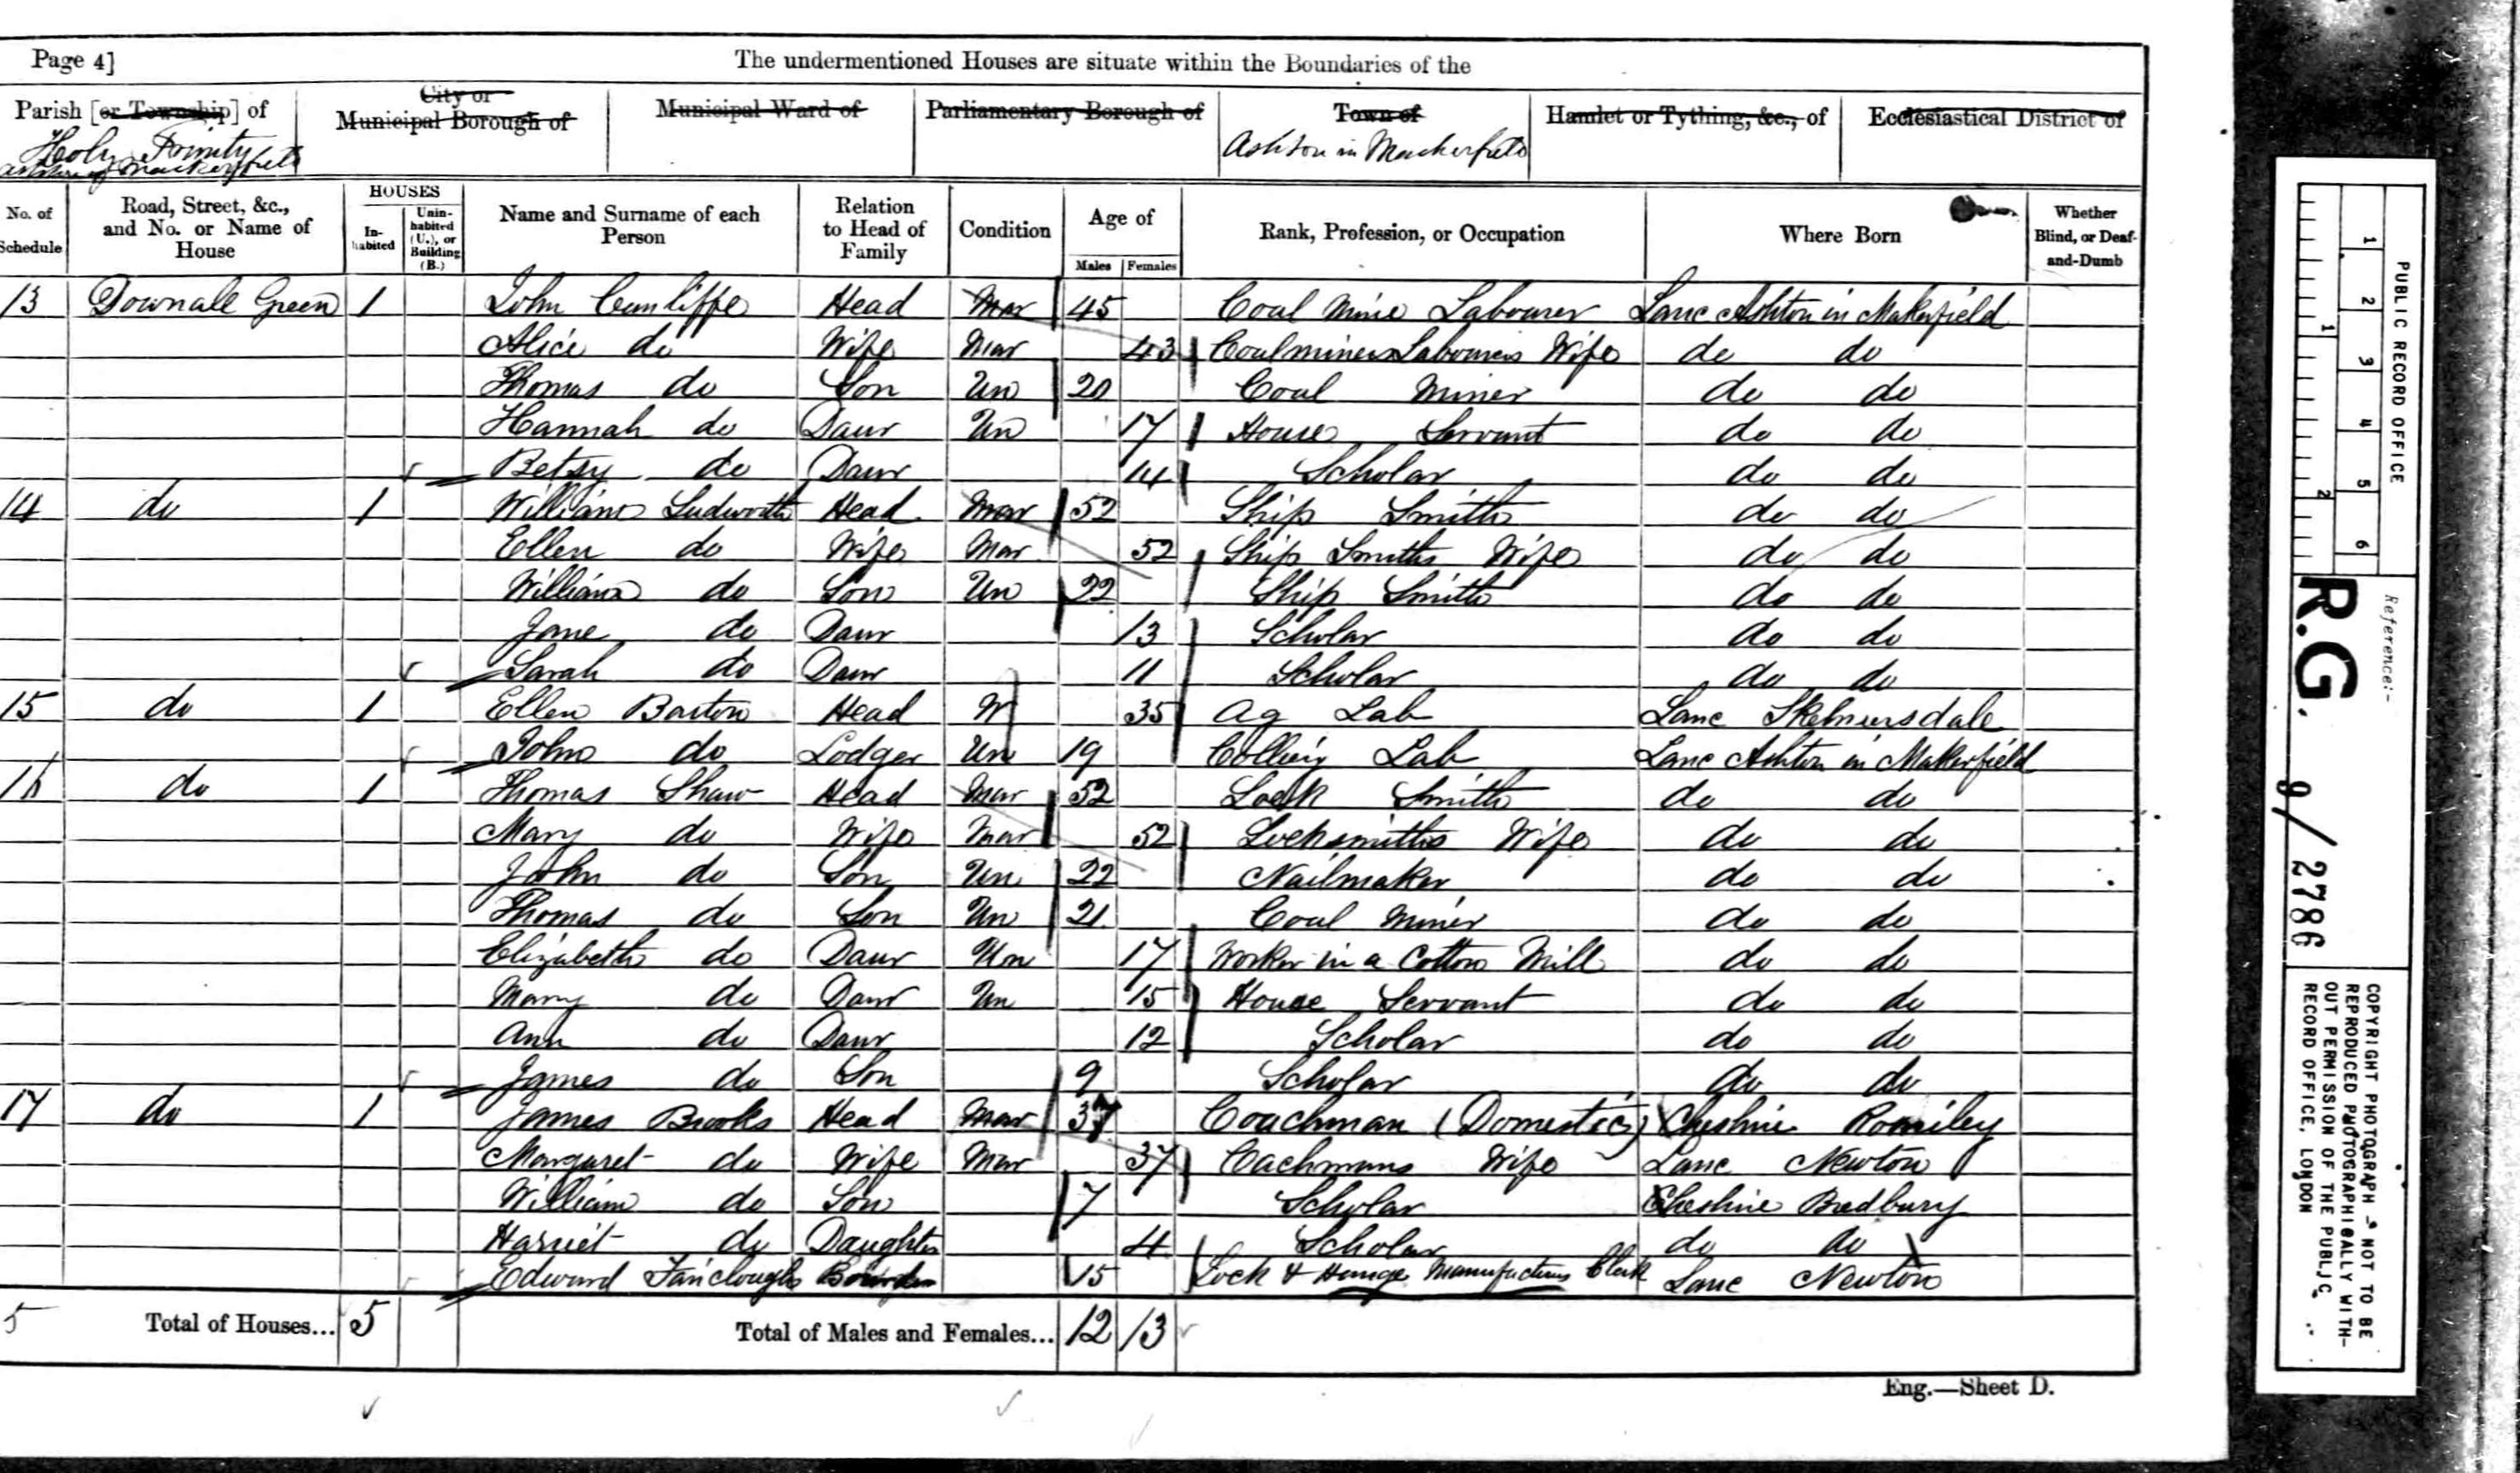 Page 4]
The undermentioned Houses are situate within the Boundaries of the
Parish [or Township] of
City or Municipal Borough of
Municipal Ward of
Parliamentary Borough of
Town of
Hamlet or Tything, &c., of
Ecclesiastical District of
Holy Trinity
Ashton in Mackerfield
Ashton in Mackerfield
No. of Schedule
Road, Street, &c., and No. or Name of House
HOUSES
In-habited
Unin-habited (U.), or Building (B.)
Name and Surname of each Person
Relation to Head of Family
Condition
Age of
Males
Females
Rank, Profession, or Occupation
Where Born
Whether Blind, or Deaf-and-Dumb
13 Downall Green 1 John Cunliffe Head Mar 45 Coal Mine Labourer Lanc Ashton in Makerfield
Alice do Wife Mar 43 Coalminers Labourers Wife do do
Thomas do Son Un 20 Coal Miner do do
Hannah do Daur Un 17 House Servant do do
Betsy do Daur 14 Scholar do do
14 do 1 William Ludworth Head Mar 52 Ship Smith do do
Ellen do Wife Mar 52 Ship Smiths Wife do do
William do Son Un 22 Ship Smith do do
Jane do Daur 13 Scholar do do
Sarah do Daur 11 Scholar do do
15 do 1 Ellen Barton Head W 35 Ag Lab Lanc Skelmersdale
John do Lodger Un 19 Colliery Lab Lanc Ashton in Makerfield
16 do 1 Thomas Shaw Head Mar 52 Lock Smith do do
Mary do Wife Mar 52 Locksmiths Wife do do
John do Son Un 22 Nailmaker do do
Thomas do Son Un 21 Coal Miner do do
Elizabeth do Daur Un 17 Worker in a Cotton Mill do do
Mary do Daur Un 15 House Servant do do
Ann do Daur 12 Scholar do do
James do Son 9 Scholar do do
17 do 1 James Brooks Head Mar 37 Coachman (Domestic) Cheshire Romiley
Margaret do Wife Mar 37 Cachmans Wife Lanc Newton
William do Son 7 Scholar Cheshire Bredbury
Harriet do Daughter 4 Scholar do do
Edward Fairclough Boarder 15 Lock & Hinge Manufacturers Clerk Lanc Newton
5 Total of Houses... 5 Total of Males and Females... 12 13
Eng.—Sheet D.
PUBLIC RECORD OFFICE
1 2 3 4 5 6
1 2
Reference:-
R.G. 9/2786
COPYRIGHT PHOTOGRAPH - NOT TO BE
REPRODUCED PHOTOGRAPHICALLY WITH-
OUT PERMISSION OF THE PUBLIC
RECORD OFFICE, LONDON